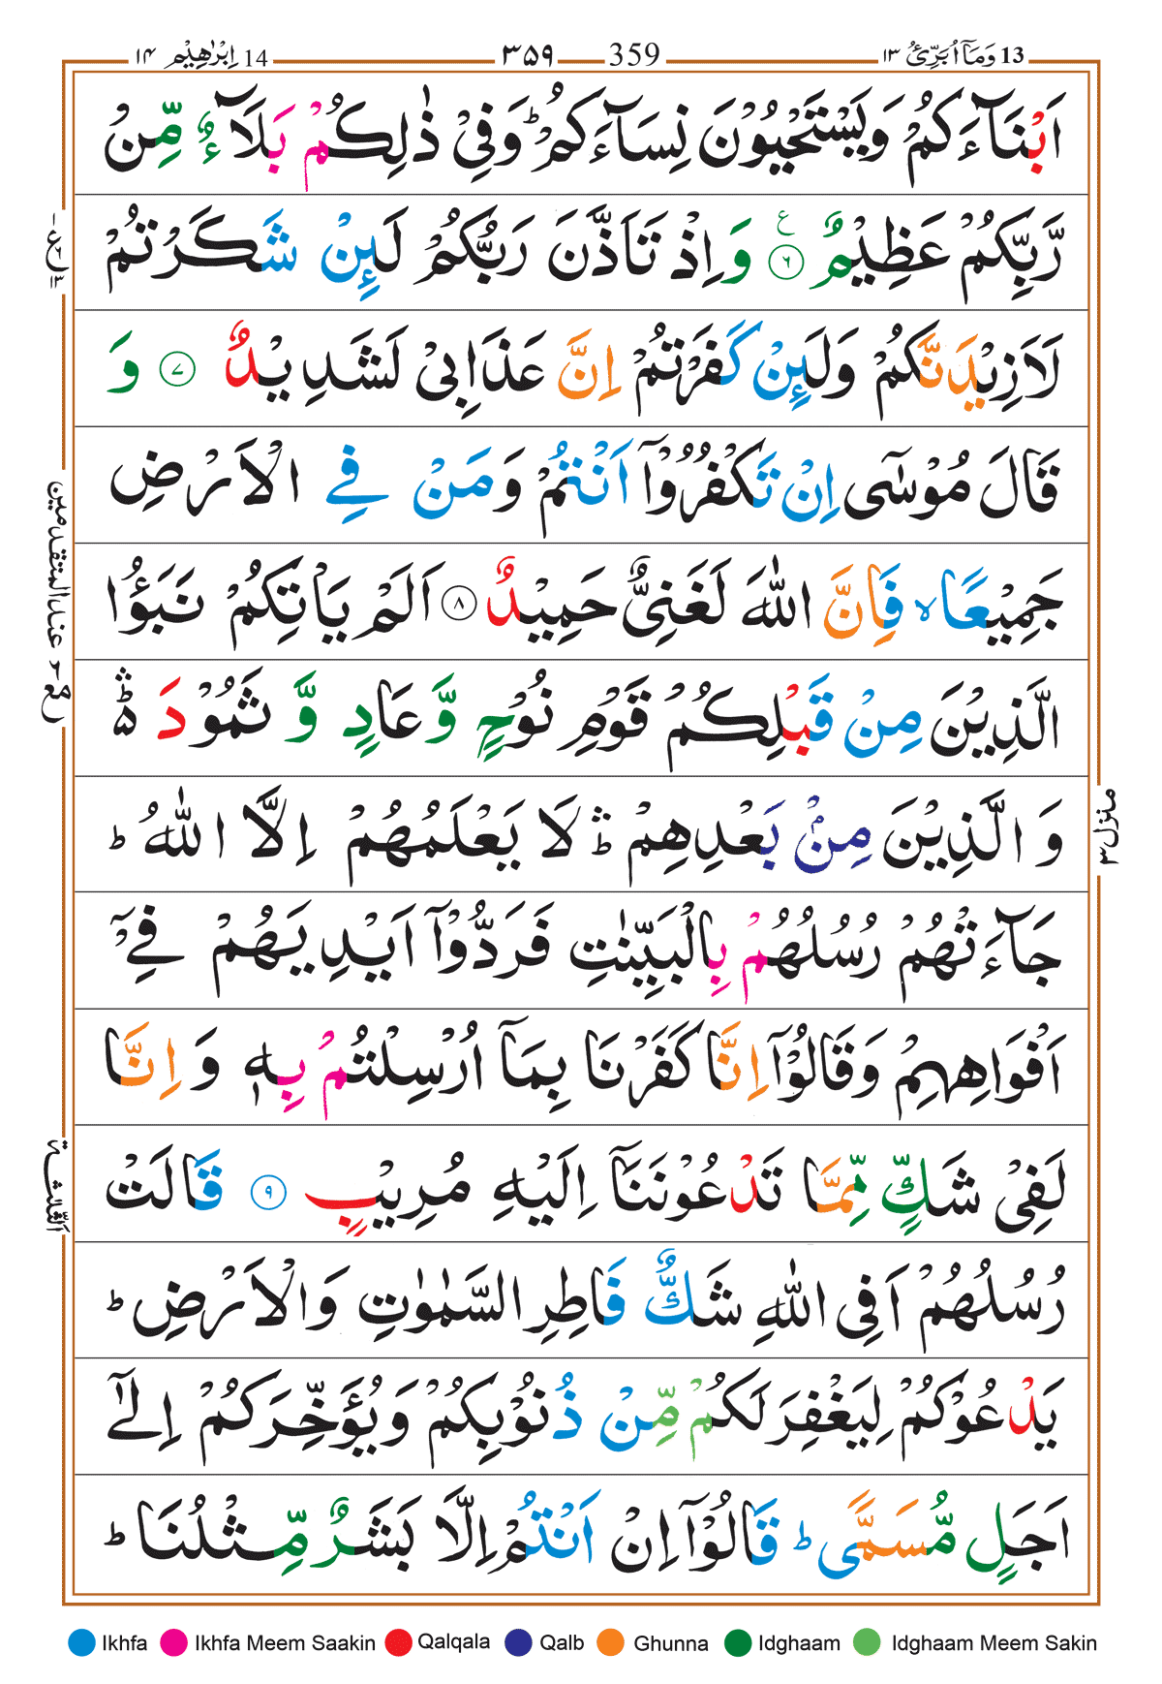 13 وَمَآ اُبَرِّئُ ١٣ 359 ٣٥٩ 14 اِبْرٰهِيْم ١٤
اَبْنَآءَكُمْ وَيَسْتَحْيُوْنَ نِسَآءَكُمْ ؕ وَفِيْ ذٰلِكُمْ بَلَآءٌ مِّنْ
رَّبِّكُمْ عَظِيْمٌ ۝٦ ع وَ اِذْ تَاَذَّنَ رَبُّكُمْ لَئِنْ شَكَرْتُمْ
لَاَزِيْدَنَّكُمْ وَلَئِنْ كَفَرْتُمْ اِنَّ عَذَابِيْ لَشَدِيْدٌ ۝٧ وَ
قَالَ مُوْسٰٓى اِنْ تَكْفُرُوْٓا اَنْتُمْ وَمَنْ فِي الْاَرْضِ
جَمِيْعًا ۙ فَاِنَّ اللّٰهَ لَغَنِيٌّ حَمِيْدٌ ۝٨ اَلَمْ يَاْتِكُمْ نَبَؤُا
الَّذِيْنَ مِنْ قَبْلِكُمْ قَوْمِ نُوْحٍ وَّعَادٍ وَّ ثَمُوْدَ ۛؕ
وَ الَّذِيْنَ مِنْۢ بَعْدِهِمْ ۛؕ لَا يَعْلَمُهُمْ اِلَّا اللّٰهُ ؕ
جَآءَتْهُمْ رُسُلُهُمْ بِالْبَيِّنٰتِ فَرَدُّوْٓا اَيْدِيَهُمْ فِيْٓ
اَفْوَاهِهِمْ وَقَالُوْٓا اِنَّا كَفَرْنَا بِمَآ اُرْسِلْتُمْ بِهٖ وَ اِنَّا
لَفِيْ شَكٍّ مِّمَّا تَدْعُوْنَنَآ اِلَيْهِ مُرِيْبٍ ۝٩ قَالَتْ
رُسُلُهُمْ اَفِي اللّٰهِ شَكٌّ فَاطِرِ السَّمٰوٰتِ وَالْاَرْضِ ؕ
يَدْعُوْكُمْ لِيَغْفِرَ لَكُمْ مِّنْ ذُنُوْبِكُمْ وَيُؤَخِّرَكُمْ اِلٰٓى
اَجَلٍ مُّسَمًّى ؕ قَالُوْٓا اِنْ اَنْتُمْ اِلَّا بَشَرٌ مِّثْلُنَا ؕ
منزل ٣
عند المتقدمين
الثلثة
Ikhfa Ikhfa Meem Saakin Qalqala Qalb Ghunna Idghaam Idghaam Meem Sakin